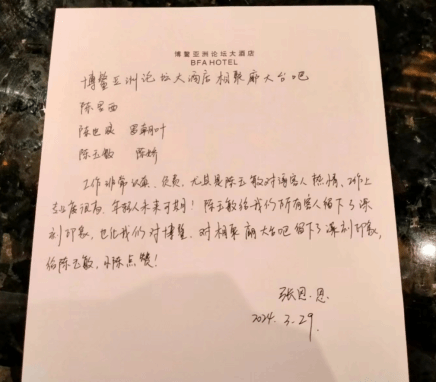 博鳌亚洲论坛大酒店
BFA HOTEL
博鳌亚洲论坛大酒店相聚廊大台吧
陈 西
陈世 罗朝叶
陈玉敏 陈娇
工作非常认真、负责,尤其是陈玉敏对待客人热情,工作上
专业度很高,年轻人未来可期!陈玉敏给我们所有客人留下了深
刻印象,也让我们对博鳌、对相聚廊大台吧留下了深刻印象,
给陈玉敏,小陈点赞!
张恩.恩
2024.3.29.